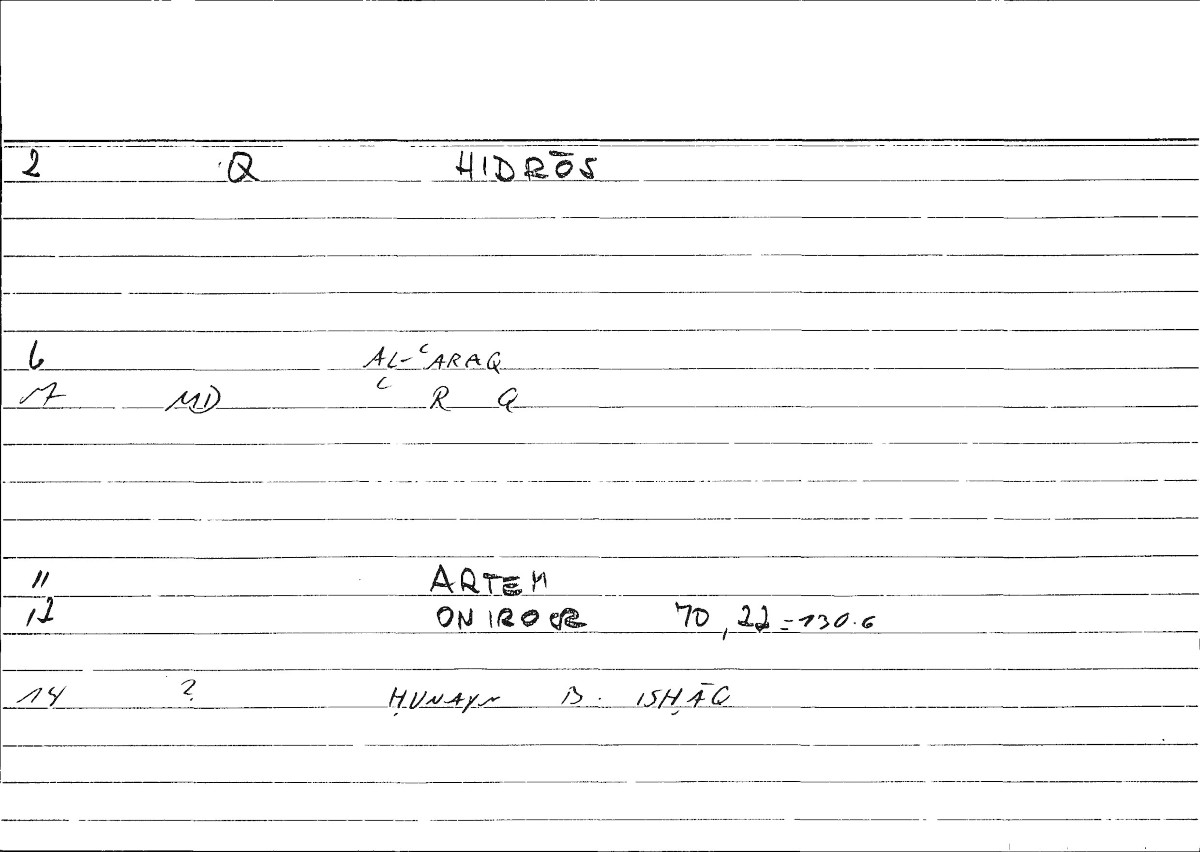 2 Q HIDRŌS
6 AL-ʿARAQ
7 MD ʿ R Q
11 ARTEM
12 ONIROCR 70,22=130.6
14 ? ḤUNAYN B. ISḤĀQ